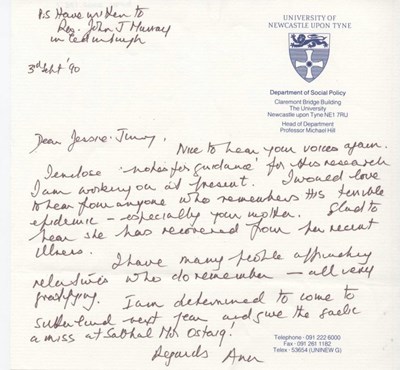 P.S Have written to
Rev. John J Murray
in Edinburgh
3rd Sept '90
UNIVERSITY OF
NEWCASTLE UPON TYNE
Department of Social Policy
Claremont Bridge Building
The University
Newcastle upon Tyne NE1 7RU
Head of Department
Professor Michael Hill
Dear Jessie - Jimmy,
Nice to hear your voices again.
I enclose 'notes for guidance' for this research
I am working on at present. I would love
to hear from anyone who remembers this terrible
epidemic - especially your mother. Glad to
hear she has recovered from her recent
illness.
I have many people approaching
relatives who do remember - all very
gratifying. I am determined to come to
Sutherland next year and give the Gaelic
a miss at Sabhal Mor Ostaig!
Regards Ann
Telephone · 091 222 6000
Fax · 091 261 1182
Telex · 53654 (UNINEW G)